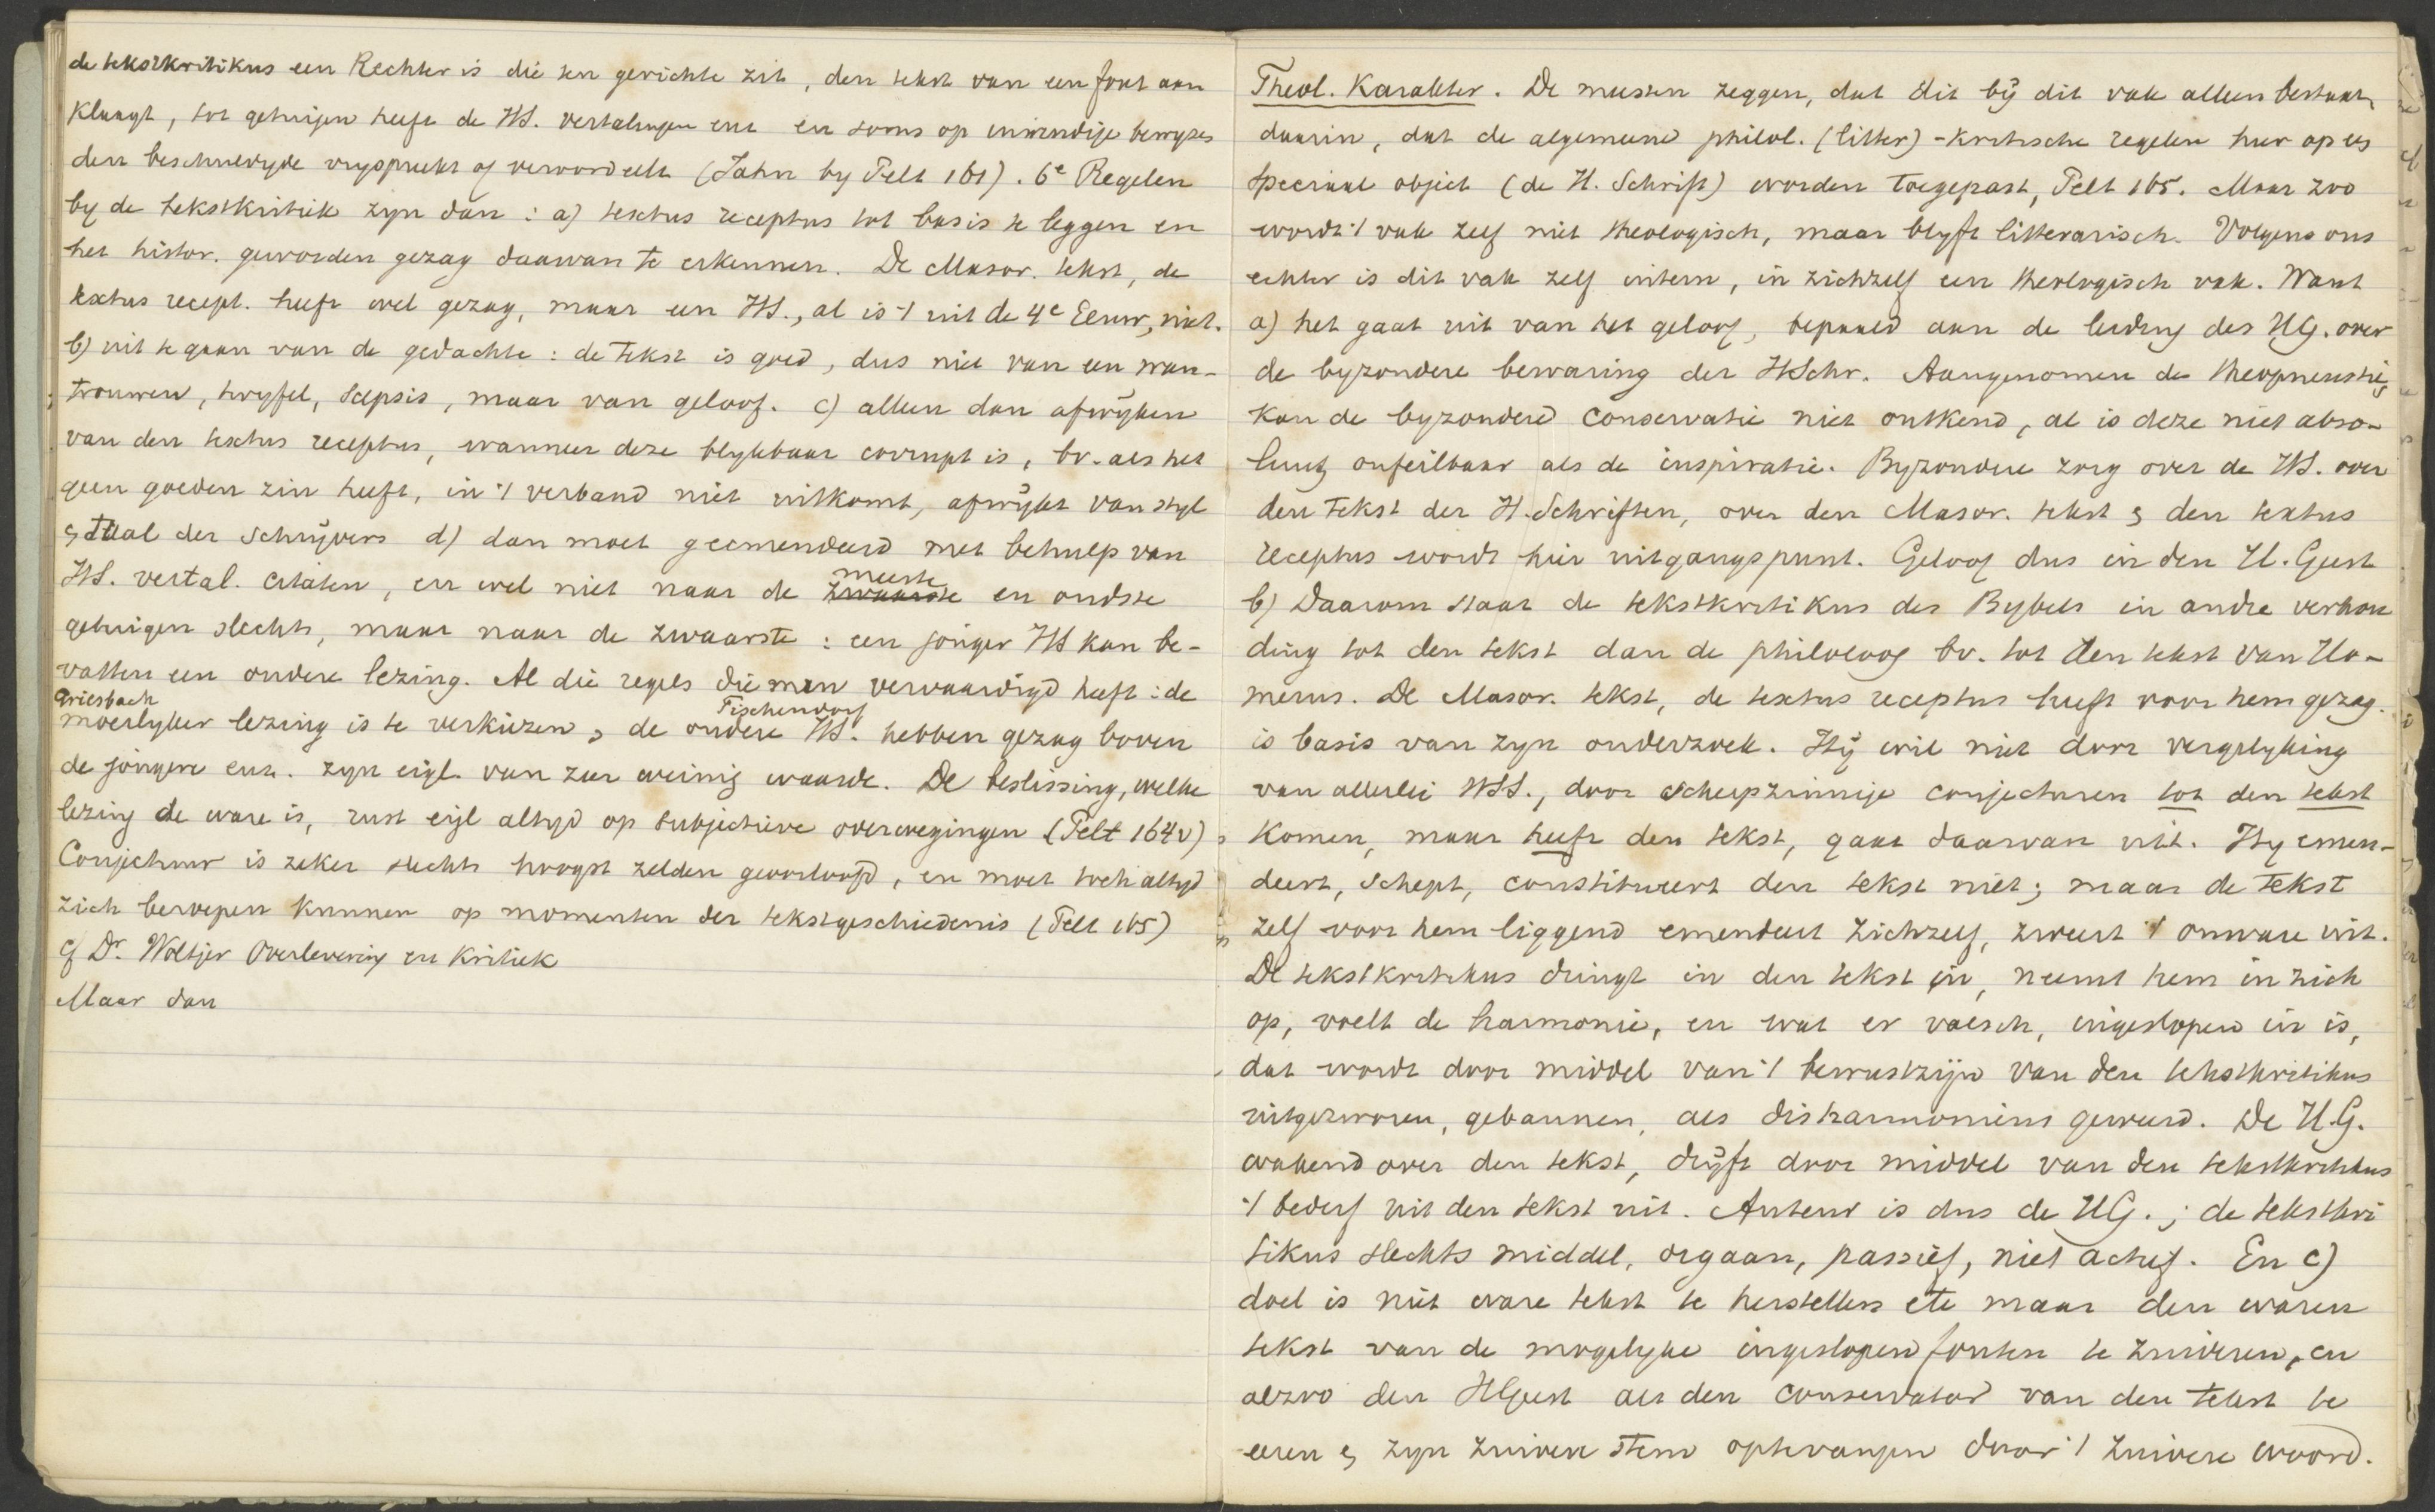 de tekstkritikus een Rechter is die ten gerichte zit, den tekst van een fout aan
klaagt, tot getuigen heeft de HS. vertalingen enz en soms op inwendige bewyzen
den beschuldigde vryspreekt of veroordeelt (Jahn by Pelt 161). 6e Regelen
by de tekstkritiek zyn dan: a) textus receptus tot basis te leggen en
het histor. geworden gezag daarvan te erkennen. De Masor. tekst, de
textus recept. heeft wel gezag, maar een HS., al is 't uit de 4e Eeuw, niet.
b) uit te gaan van de gedachte: de tekst is goed, dus niet van een wan-
trouwen, twyfel, scepsis, maar van geloof. c) alleen dan afwyken
van den textus receptus, wanneer deze blykbaar corrupt is, bv. als het
geen goeden zin heeft, in 't verband niet uitkomt, afwykt van styl
& taal der schryvers d) dan moet geemendeerd met behulp van
HS. vertal. citaten, en wel niet naar de ~~zwaarste~~ meeste en oudste
getuigen slechts, maar naar de zwaarste: een jonger HS kan be-
vatten een oudere lezing. Al die regels die men vervaardigd heeft: de
Griesbach Tischendorf
moeilyker lezing is te verkiezen, de oudere HS. hebben gezag boven
de jongere enz. zyn eigl. van zeer weinig waarde. De beslissing, welke
lezing de ware is, rust eigl altyd op subjectieve overwegingen (Pelt 164v)
Conjectuur is zeker slechts hoogst zelden geoorloofd, en moet toch altyd
zich beroepen kunnen op momenten der tekstgeschiedenis (Pelt 165)
cf Dr. Woltjer Overlevering en Kritiek
Maar dan
Theol. Karakter. De meesten zeggen, dat dit by dit vak alleen bestaat
daarin, dat de algemeene philol. (litter)-kritische regelen hier op een
speciaal object (de H. Schrift) worden toegepast, Pelt 165. Maar zoo
wordt 't vak zelf niet theologisch, maar blyft litterarisch. Volgens ons
echter is dit vak zelf intern, in zichzelf een theologisch vak. Want
a) het gaat uit van het geloof, bepaald aan de leiding des H.G. over
de byzondere bewaring der HSchr. Aangenomen de theopneustie,
kan de byzondere conservatie niet ontkend, al is deze niet abso-
luut, onfeilbaar als de inspiratie. Byzondere zorg over de HS. over
den tekst der H. Schriften, over den Masor. tekst & den textus
receptus wordt hier uitgangspunt. Geloof dus in den H. Geest
b) Daarom staat de tekstkritikus des Bybels in andre verhou
ding tot den tekst dan de philoloog bv. tot den tekst van Ho-
merus. De Masor. tekst, de textus receptus heeft voor hem gezag.
is basis van zyn onderzoek. Hy wil niet door vergelyking
van allerlei HSS., door scherpzinnige conjecturen tot den tekst
komen, maar heeft den tekst, gaat daarvan uit. Hy emen-
deert, schept, constitueert den tekst niet; maar de tekst
zelf voor hem liggend emendeert zichzelf, zweert 't onware uit.
De tekstkritikus dringt in den tekst in, neemt hem in zich
op, voelt de harmonie, en wat er valsch, ingeslopen in is,
dat wordt door middel van 't bewustzyn van den tekstkritikus
uitgezworen, gebannen, als disharmonieus geweerd. De H.G.
wakend over den tekst, dryft door middel van den tekstkritikus
't bederf uit den tekst uit. Auteur is dus de HG.; de tekstkri
tikus slechts middel, orgaan, passief, niet actief. En c)
doel is niet ware tekst te herstellen etc maar den waren
tekst van de mogelyke ingeslopen fouten te zuiveren, en
alzoo den HGeest als den conservator van den tekst te
eeren & zyn zuivere stem optevangen door 't zuivere woord.